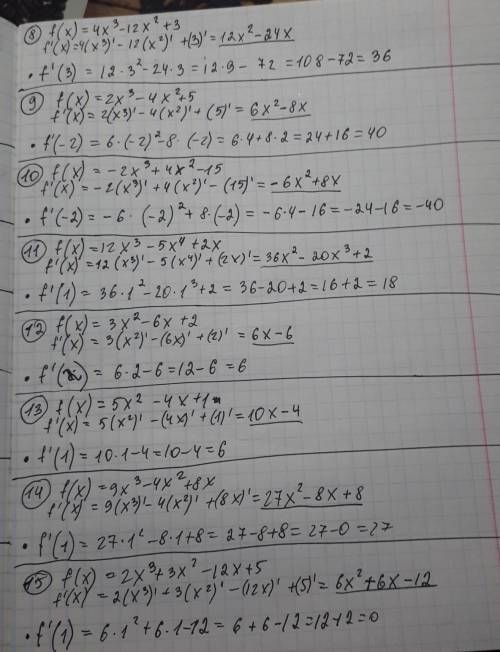 8 f(x) = 4x³-12x²+3
f'(x)=4(x³)'-12(x²)'+(3)'=12x²-24x
• f'(3) = 12·3²-24·3 = 12·9 - 72 = 108-72 = 36
9 f(x) = 2x³-4x²+5
f'(x) = 2(x³)'-4(x²)'+(5)' = 6x²-8x
• f'(-2) = 6·(-2)²-8·(-2) = 6·4+8·2 = 24+16 = 40
10 f(x) = -2x³+4x²-15
f'(x) = -2(x³)'+4(x²)'-(15)' = -6x²+8x
• f'(-2) = -6·(-2)²+8·(-2) = -6·4-16 = -24-16 = -40
11 f(x) = 12x³-5x⁴+2x
f'(x) = 12(x³)'-5(x⁴)'+(2x)' = 36x²-20x³+2
• f'(1) = 36·1²-20·1³+2 = 36-20+2 = 16+2 = 18
12 f(x) = 3x²-6x+2
f'(x) = 3(x²)'-(6x)'+(2)' = 6x-6
• f'( ) = 6·2-6=12-6 = 6
13 f(x) = 5x²-4x+1
f'(x) = 5(x²)'-(4x)'+(1)' = 10x-4
• f'(1) = 10·1-4=10-4 = 6
14 f(x) = 9x³-4x²+8x
f'(x) = 9(x³)'-4(x²)'+(8x)' = 27x²-8x+8
• f'(1) = 27·1²-8·1+8 = 27-8+8 = 27-0 = 27
15 f(x) = 2x³+3x²-12x+5
f'(x) = 2(x³)'+3(x²)'-(12x)'+(5)' = 6x²+6x-12
• f'(1) = 6·1²+6·1-12 = 6+6-12=12-12=0